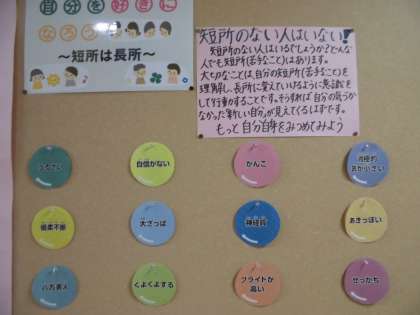 自分を好きに
なろう
～短所は長所～
短所のない人はいない!
短所のない人はいるでしょうか?どんな
人でも短所(苦手なこと)はあります。
大切なことは、自分の短所(苦手なこと)を
理解し、長所に変えていけるように意識を
して行動することです。そうすれば自分の気づか
なかった「新しい自分」が見えてくるはずです。
もっと自分自身をみつめてみよう
自信がない
がんこ
消極的
気が小さい
優柔不断
大ざっぱ
神経質
あきっぽい
八方美人
くよくよする
プライドが
高い
せっかち